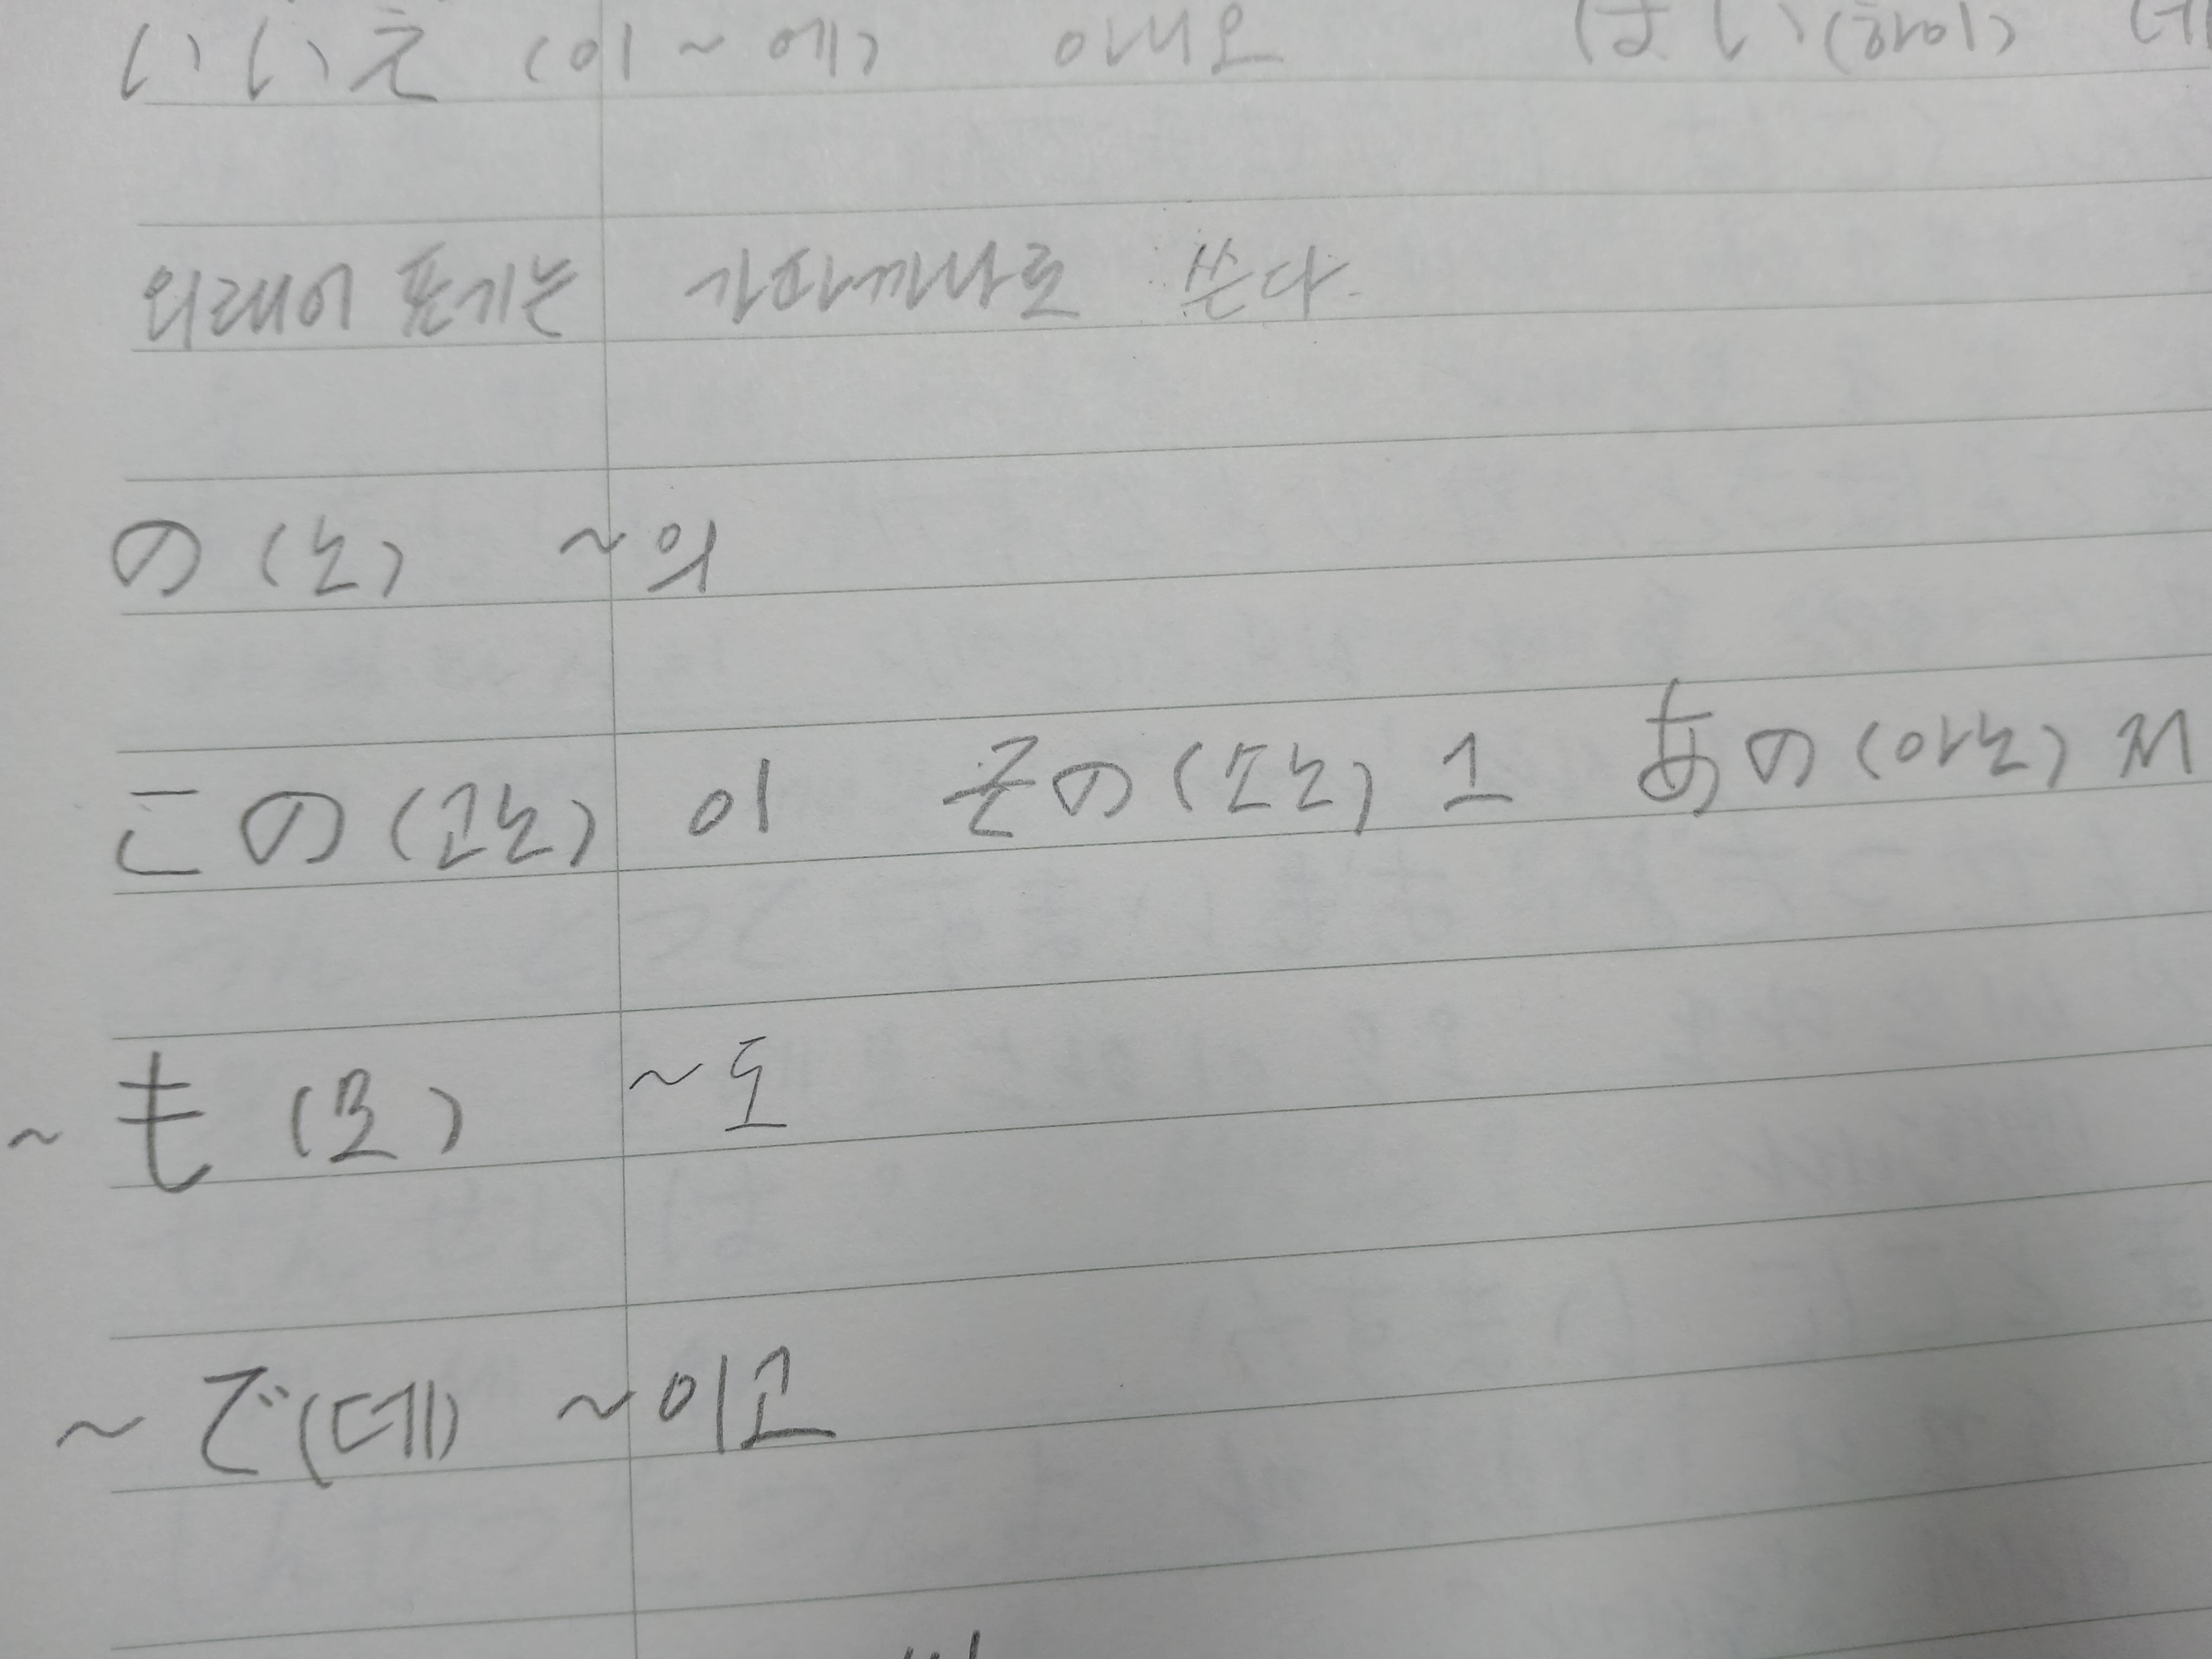 いいえ (이~에) 아니요 はい (하이) 네
외래어 표기는 가타까나로 쓴다.
の (노) ~의
この (고노) 이 その (소노) 그 あの (아노) 저
~も (모) ~도
~で (데) ~이고